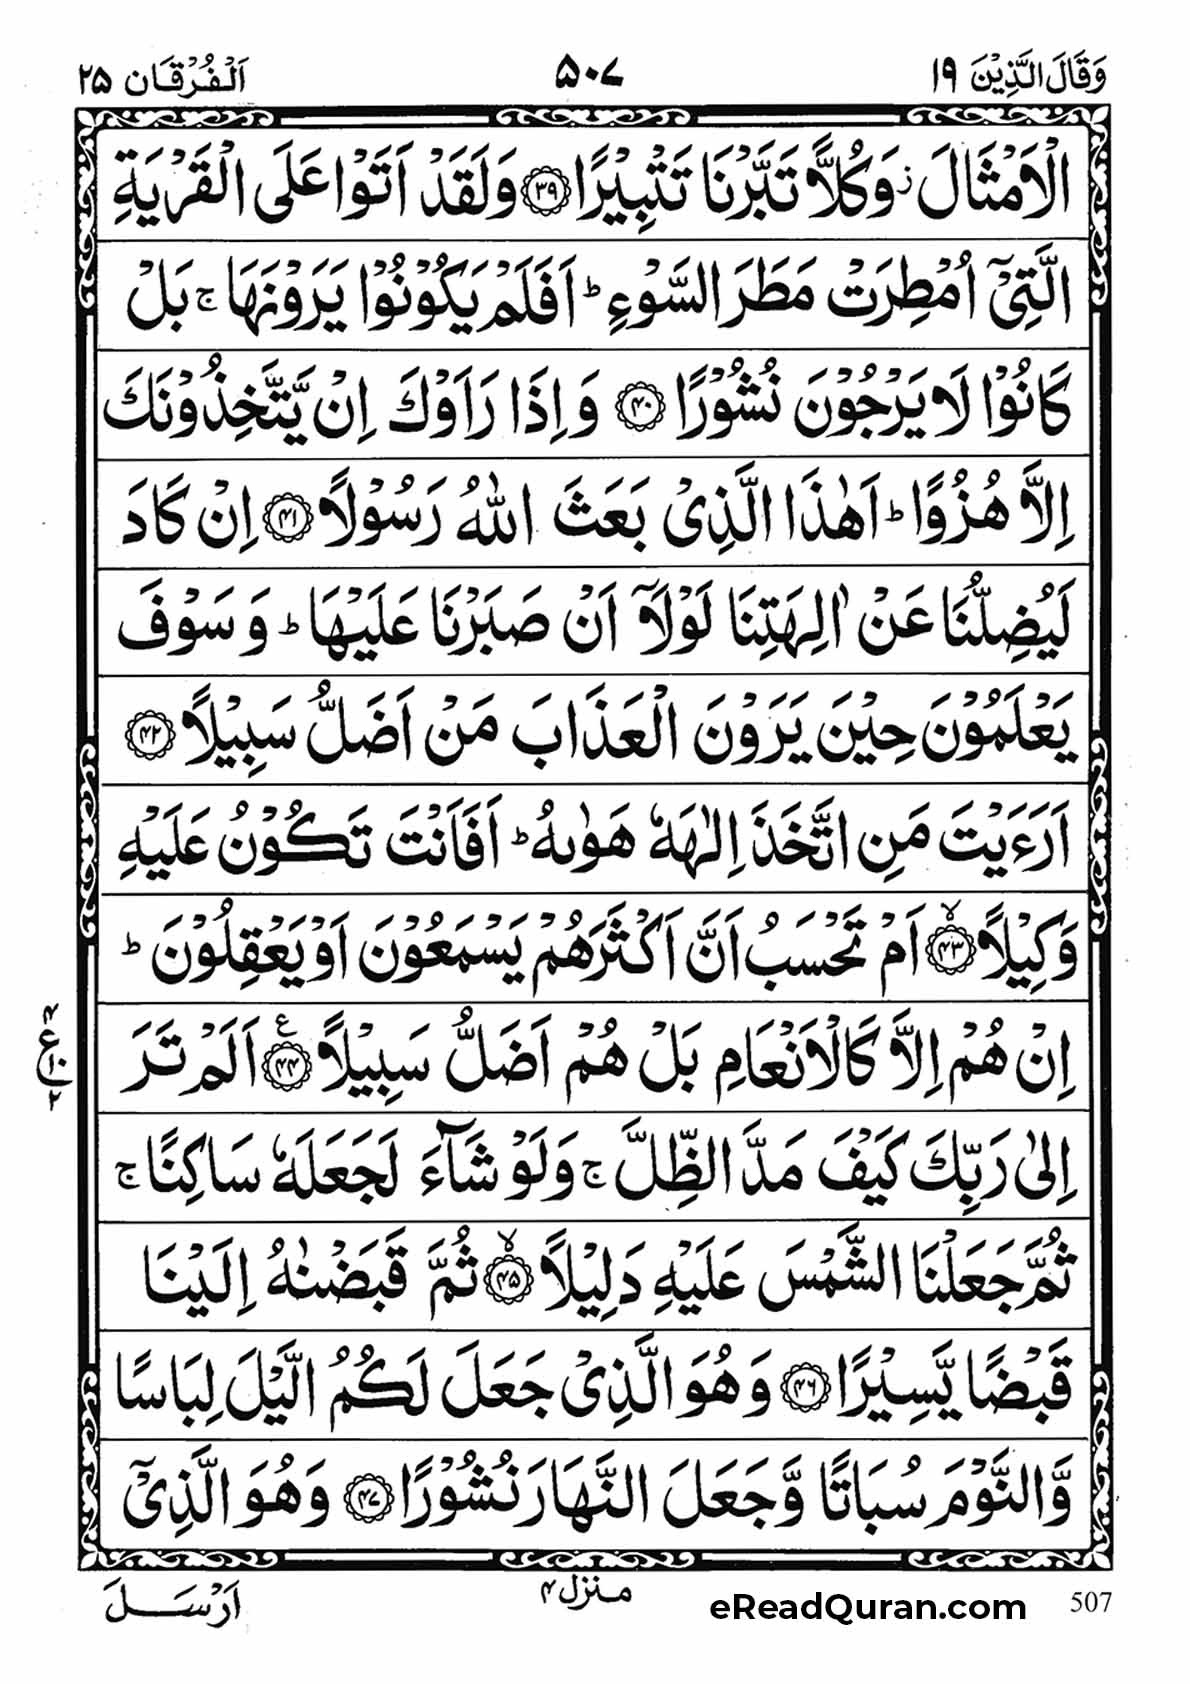 وَقَالَ الَّذِيْنَ ١٩
٥٠٧
اَلْفُرْقَان ٢٥
الْاَمْثَالَ ز وَكُلًّا تَبَّرْنَا تَتْبِيْرًا ﴿٣٩﴾ وَلَقَدْ اَتَوْا عَلَى الْقَرْيَةِ
الَّتِيْٓ اُمْطِرَتْ مَطَرَ السَّوْءِ ط اَفَلَمْ يَكُوْنُوْا يَرَوْنَهَا ج بَلْ
كَانُوْا لَا يَرْجُوْنَ نُشُوْرًا ﴿٤٠﴾ وَاِذَا رَاَوْكَ اِنْ يَّتَّخِذُوْنَكَ
اِلَّا هُزُوًا ط اَهٰذَا الَّذِيْ بَعَثَ اللّٰهُ رَسُوْلًا ﴿٤١﴾ اِنْ كَادَ
لَيُضِلُّنَا عَنْ اٰلِهَتِنَا لَوْلَآ اَنْ صَبَرْنَا عَلَيْهَا ط وَسَوْفَ
يَعْلَمُوْنَ حِيْنَ يَرَوْنَ الْعَذَابَ مَنْ اَضَلُّ سَبِيْلًا ﴿٤٢﴾
اَرَءَيْتَ مَنِ اتَّخَذَ اِلٰهَهٗ هَوٰىهُ ط اَفَاَنْتَ تَكُوْنُ عَلَيْهِ
وَكِيْلًا ﴿٤٣﴾ لا اَمْ تَحْسَبُ اَنَّ اَكْثَرَهُمْ يَسْمَعُوْنَ اَوْ يَعْقِلُوْنَ ط
اِنْ هُمْ اِلَّا كَالْاَنْعَامِ بَلْ هُمْ اَضَلُّ سَبِيْلًا ﴿٤٤﴾ ع اَلَمْ تَرَ
٤
ع ١٠
٢
اِلٰى رَبِّكَ كَيْفَ مَدَّ الظِّلَّ ج وَلَوْ شَآءَ لَجَعَلَهٗ سَاكِنًا ج
ثُمَّ جَعَلْنَا الشَّمْسَ عَلَيْهِ دَلِيْلًا ﴿٤٥﴾ لا ثُمَّ قَبَضْنٰهُ اِلَيْنَا
قَبْضًا يَّسِيْرًا ﴿٤٦﴾ وَهُوَ الَّذِيْ جَعَلَ لَكُمُ الَّيْلَ لِبَاسًا
وَّالنَّوْمَ سُبَاتًا وَّجَعَلَ النَّهَارَ نُشُوْرًا ﴿٤٧﴾ وَهُوَ الَّذِيْٓ
اَرْسَلَ
منزل ٤
eReadQuran.com
507